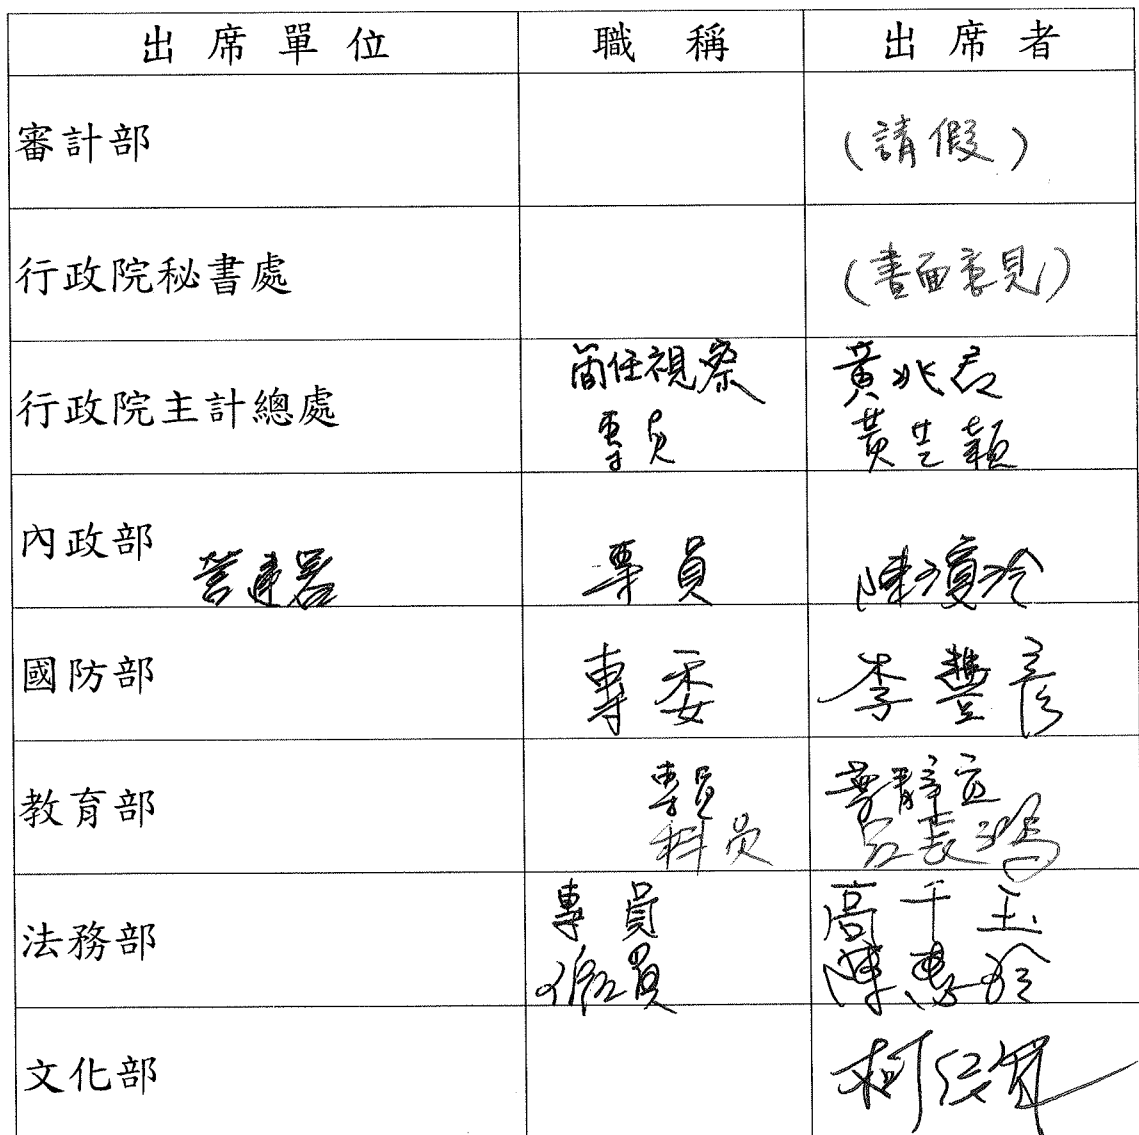 出席單位 職稱 出席者
審計部 (請假)
行政院秘書處 (書面意見)
行政院主計總處 簡任視察 黃兆君
專員 黃
內政部 營建署 專員 陳瓊玲
國防部 專委 李豐彥
教育部 專員
科員
法務部 專員 高千玉
員 陳惠玲
文化部 柯